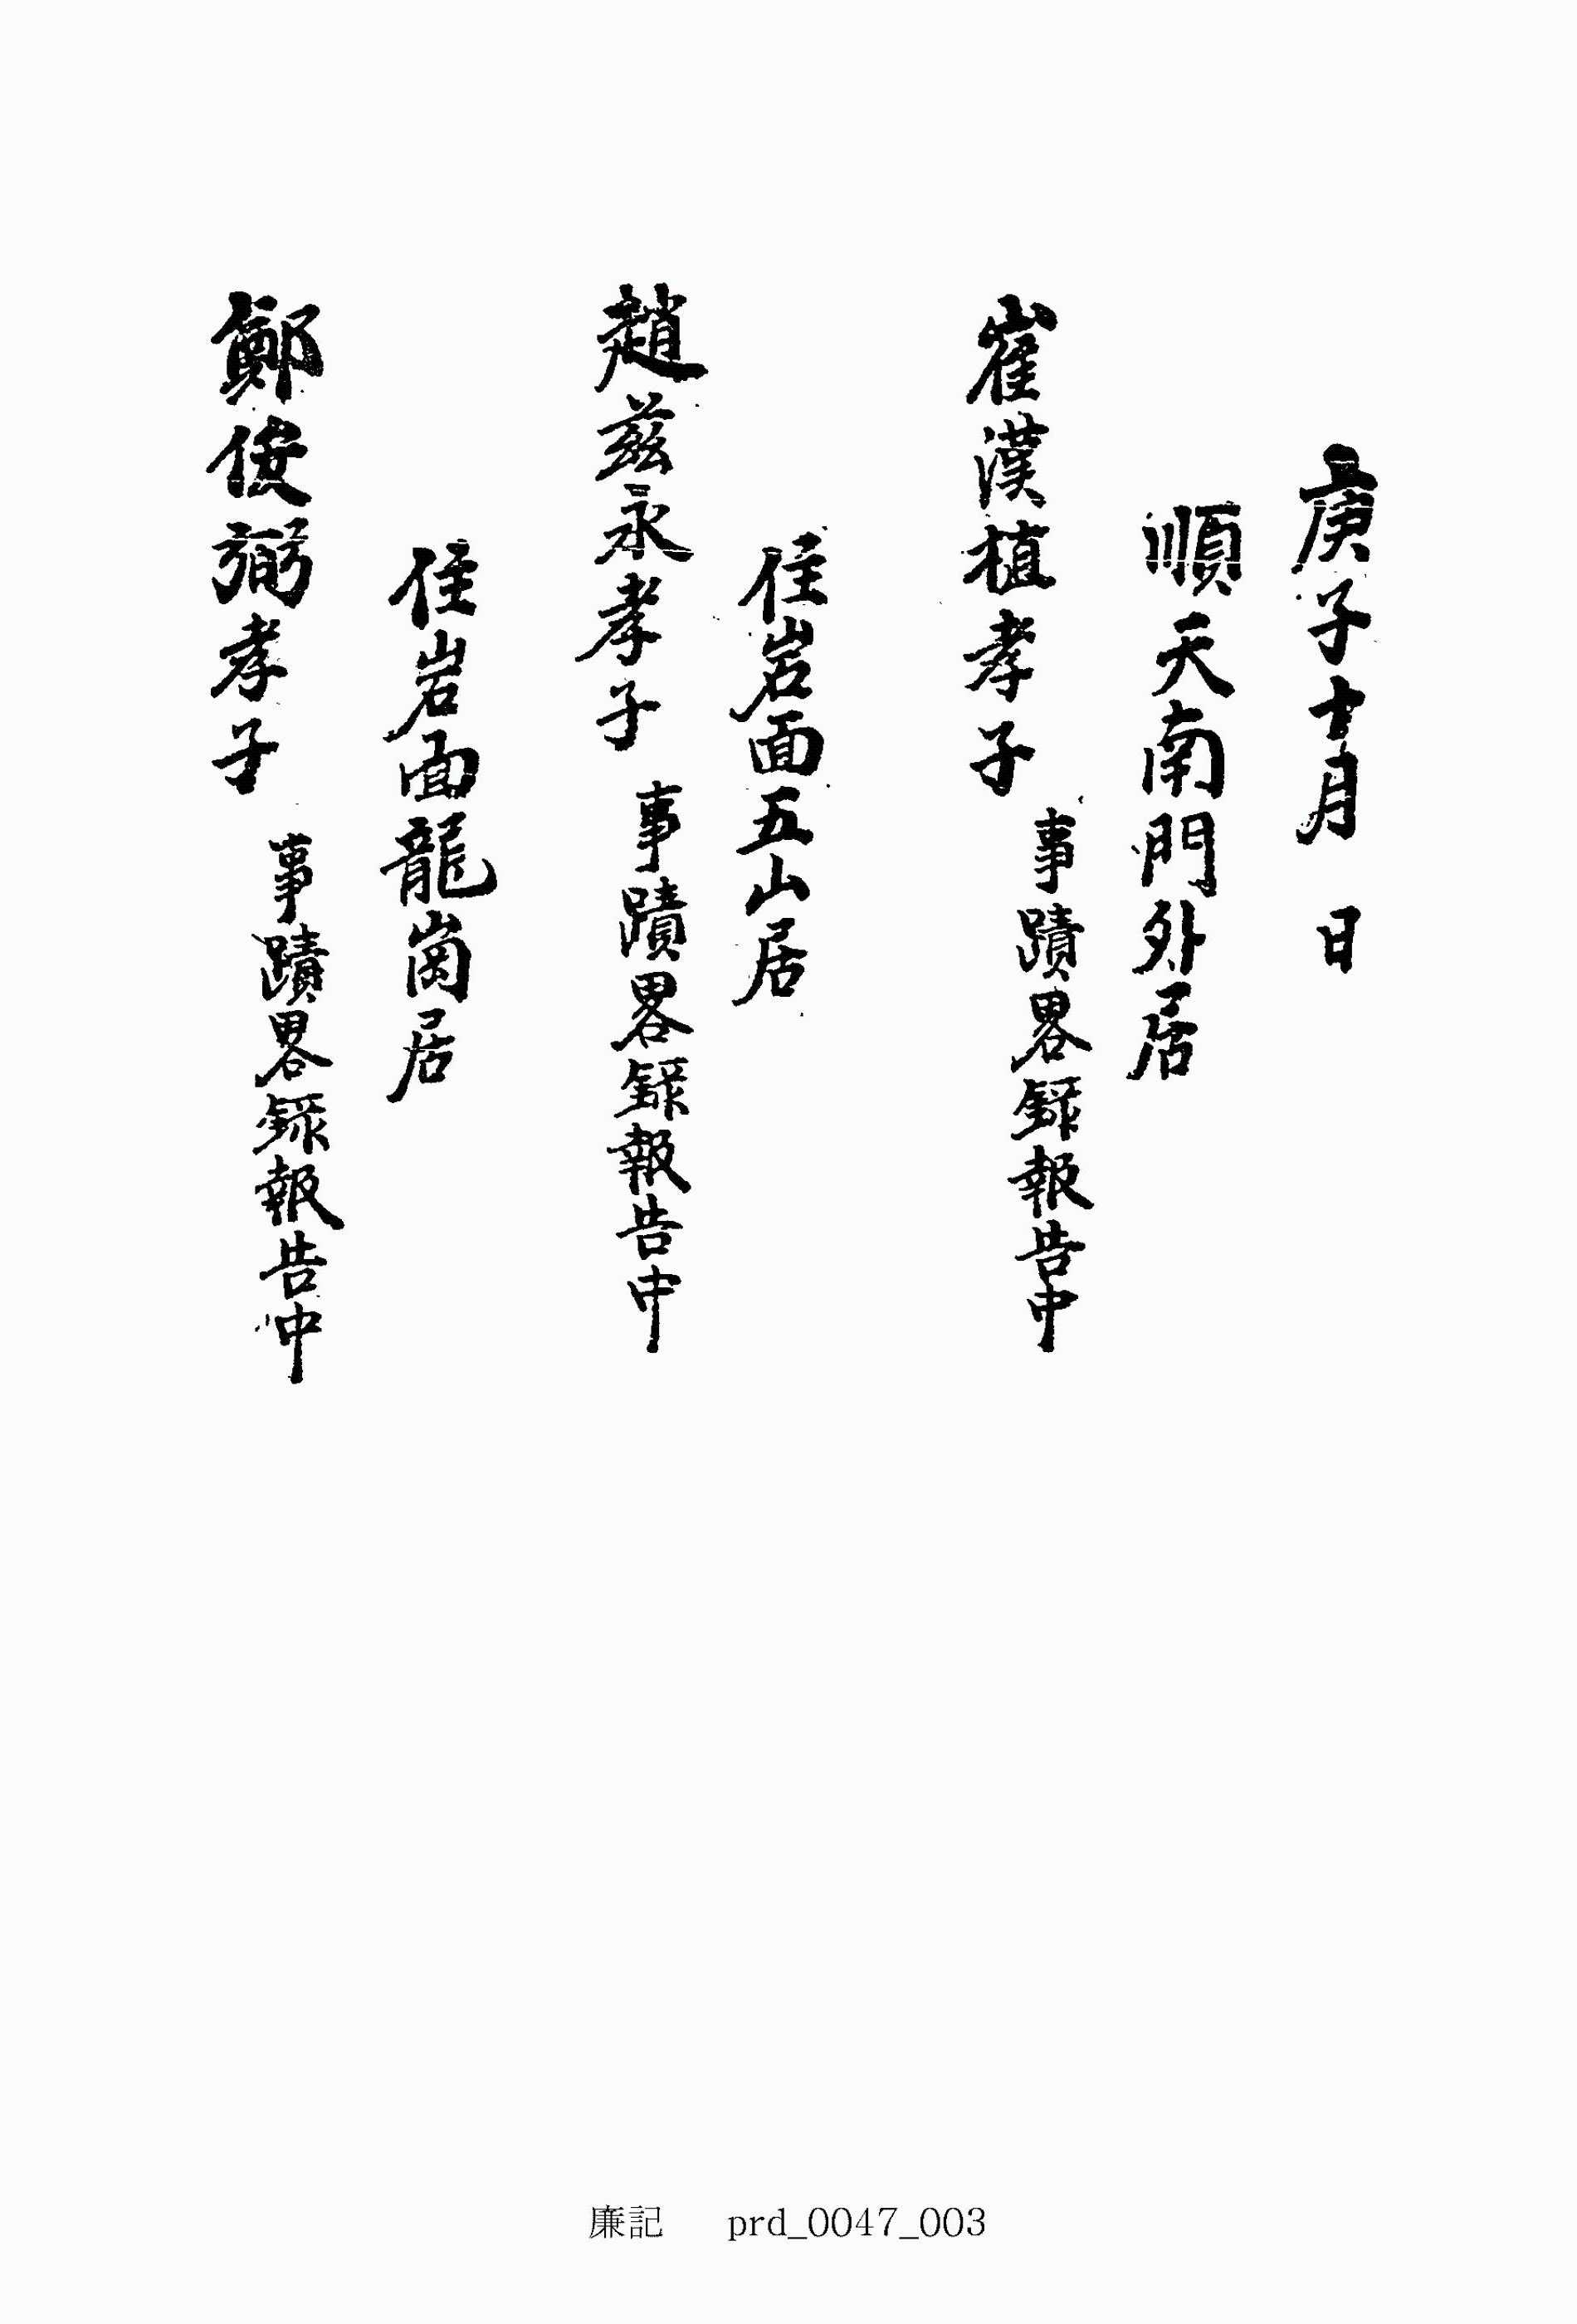 庚子十月 日
順天南門外居
崔漢植孝子 事蹟畧録報告中
住岩面五山居
趙茲永孝子 事蹟畧録報告中
住岩面龍崗居
鄭俊弼孝子 事蹟畧録報告中
廉記 prd_0047_003